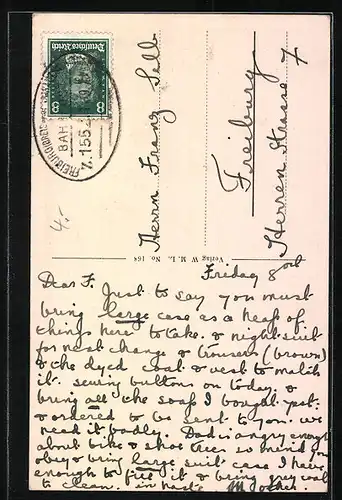 Deutsches Reich
8 8
BAH
Z. 1562
4.-
Herrn Franz Sell
Freiburg
Herren Strasse 7
Verlag W. M. L. No. 168
Friday 8
Dear F. Just to say you must
bring large case as a heap of
things here to take. & night suit
for next change & trousers (brown)
& the dyed coat & vest to match
it. sewing buttons on today. &
bring all the soaf I bought yest:
& ordered to be sent to you. we
need it badly. Dad is angry enough
about bike & shoe trees so mind you
obey & bring large suit case I have
enough to fill it & bring grey coat
to clean. in haste. Mother.